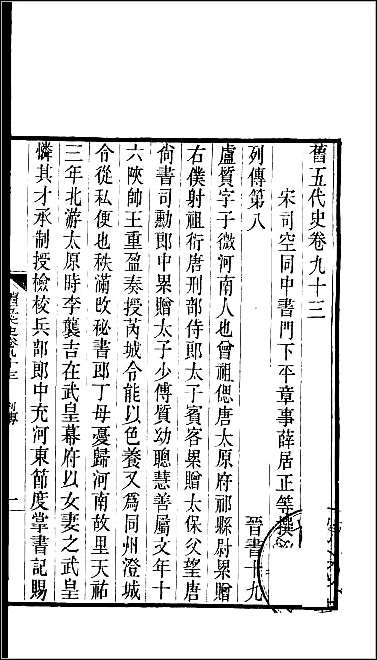 舊五代史卷九十三
宋司空同中書門下平章事薛居正等撰
列傳第八
晉書十九
盧質字子徵河南人也曾祖偲唐太原府祁縣尉累贈
右僕射祖衍唐刑部侍郎太子賓客累贈太保父望唐
尚書司勳郎中累贈太子少傅質幼聰慧善屬文年十
六陝帥王重盈奏授芮城令能以色養又為同州澄城
令從私便也秩滿改秘書郎丁母憂歸河南故里天祐
三年北游太原時李襲吉在武皇幕府以女妻之武皇
憐其才承制授檢校兵部郎中充河東節度掌書記賜
列傳
一